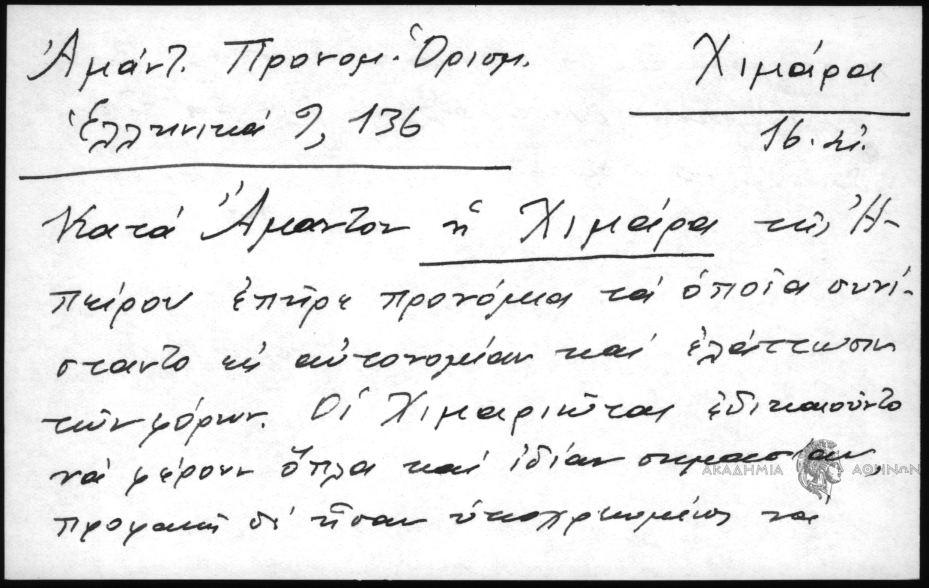 Ἀμάντ. Προνομ. Ὁρισμ.
Χιμάρα
Ἑλληνικά 9, 136
16. αἰ.
Κατά Ἄμαντον ἡ Χιμάρα τῆς Ἠ-
πείρου ἐπῆρε προνόμια τά ὁποῖα συνί-
σταντο εἰς αὐτονομίαν καί ἐλάττωσιν
τῶν φόρων. Οἱ Χιμαριῶται ἐδικαιοῦντο
νά φέρουν ὅπλα καί ἰδίαν σημαίαν,
δέ ἦσαν ὑποχρεωμένοι νά
ΑΚΑΔΗΜΙΑ ΑΘΗΝΩΝ